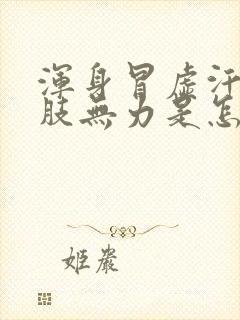 渾身冒虛汗
肢無力是怎
姬嚴